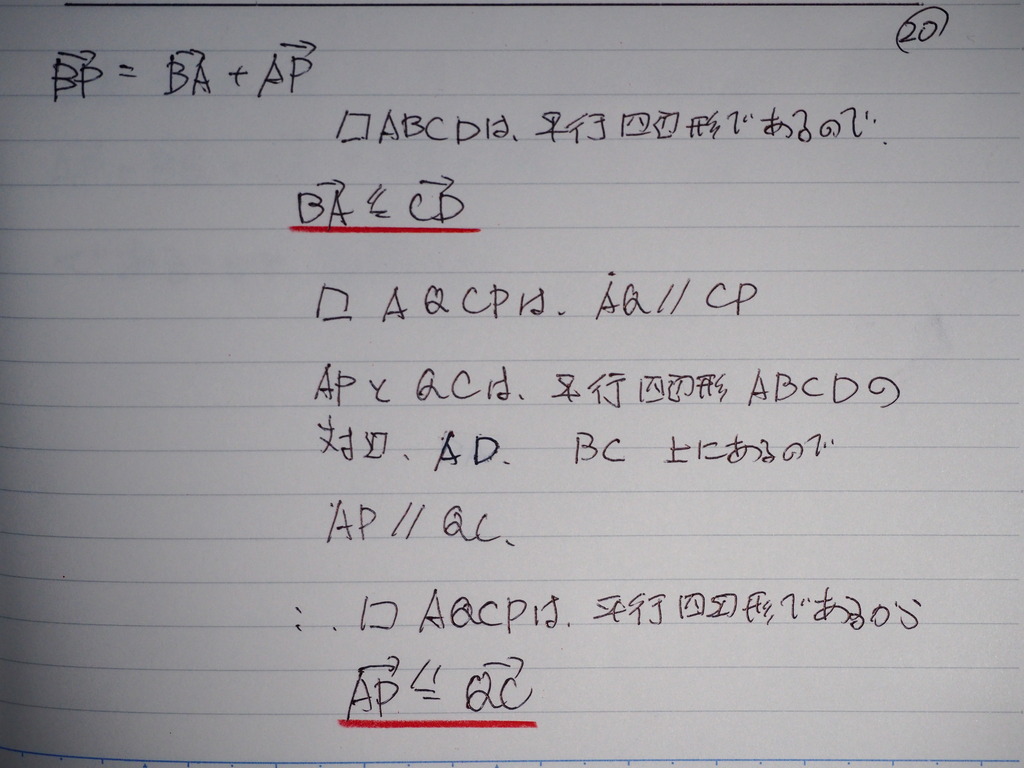 ⑳
BP→ = BA→ + AP→
□ABCDは、平行四辺形であるので、
BA→ ⩭ CD→
□AQCPは、AQ // CP
APとQCは、平行四辺形ABCDの
対辺、AD、BC 上にあるので
AP // QC、
∴ □AQCPは、平行四辺形であるから
AP→ ⩭ QC→